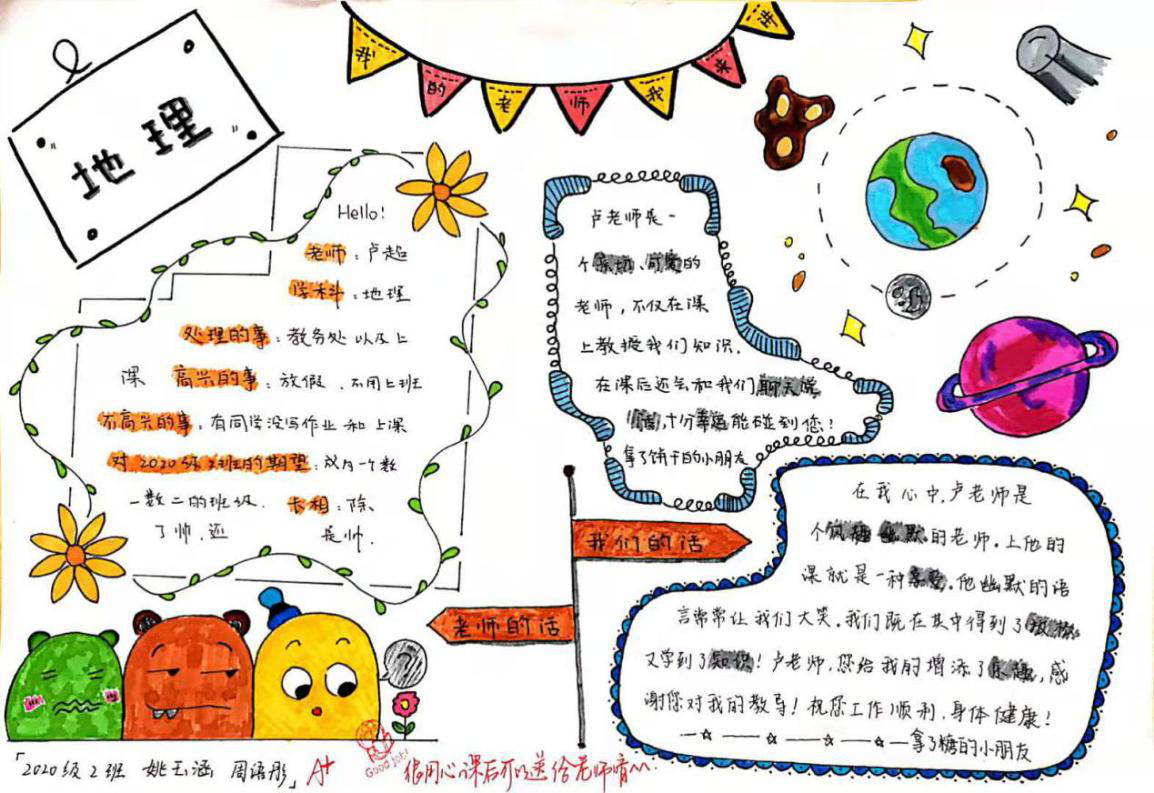 我的老师我来讲
“地理”
Hello!
老师:卢超
学科:地理
处理的事:教务处以及上
课 高兴的事:放假、不用上班
不高兴的事:有同学没写作业和上课
对2020级2班的期望:成为一个数
一数二的班级. 长相:除
了帅,还
是帅.
卢老师是一
个亲切、可爱的
老师,不仅在课
上教授我们知识,
在课后还会和我们聊天说
十分幸运能碰到您!
拿了饼干的小朋友
我们的话
老师的话
在我心中,卢老师是
个风趣幽默的老师。上他的
课就是一种享受。他幽默的语
言常常让我们大笑。我们既在其中得到了
又学到了知识!卢老师,您给我的增添了乐趣,感
谢您对我的教导!祝您工作顺利,身体健康!
拿了糖的小朋友
「2020级2班 姚玉涵 周语彤」 A+
Good job!
很用心课后可以送给老师唷~